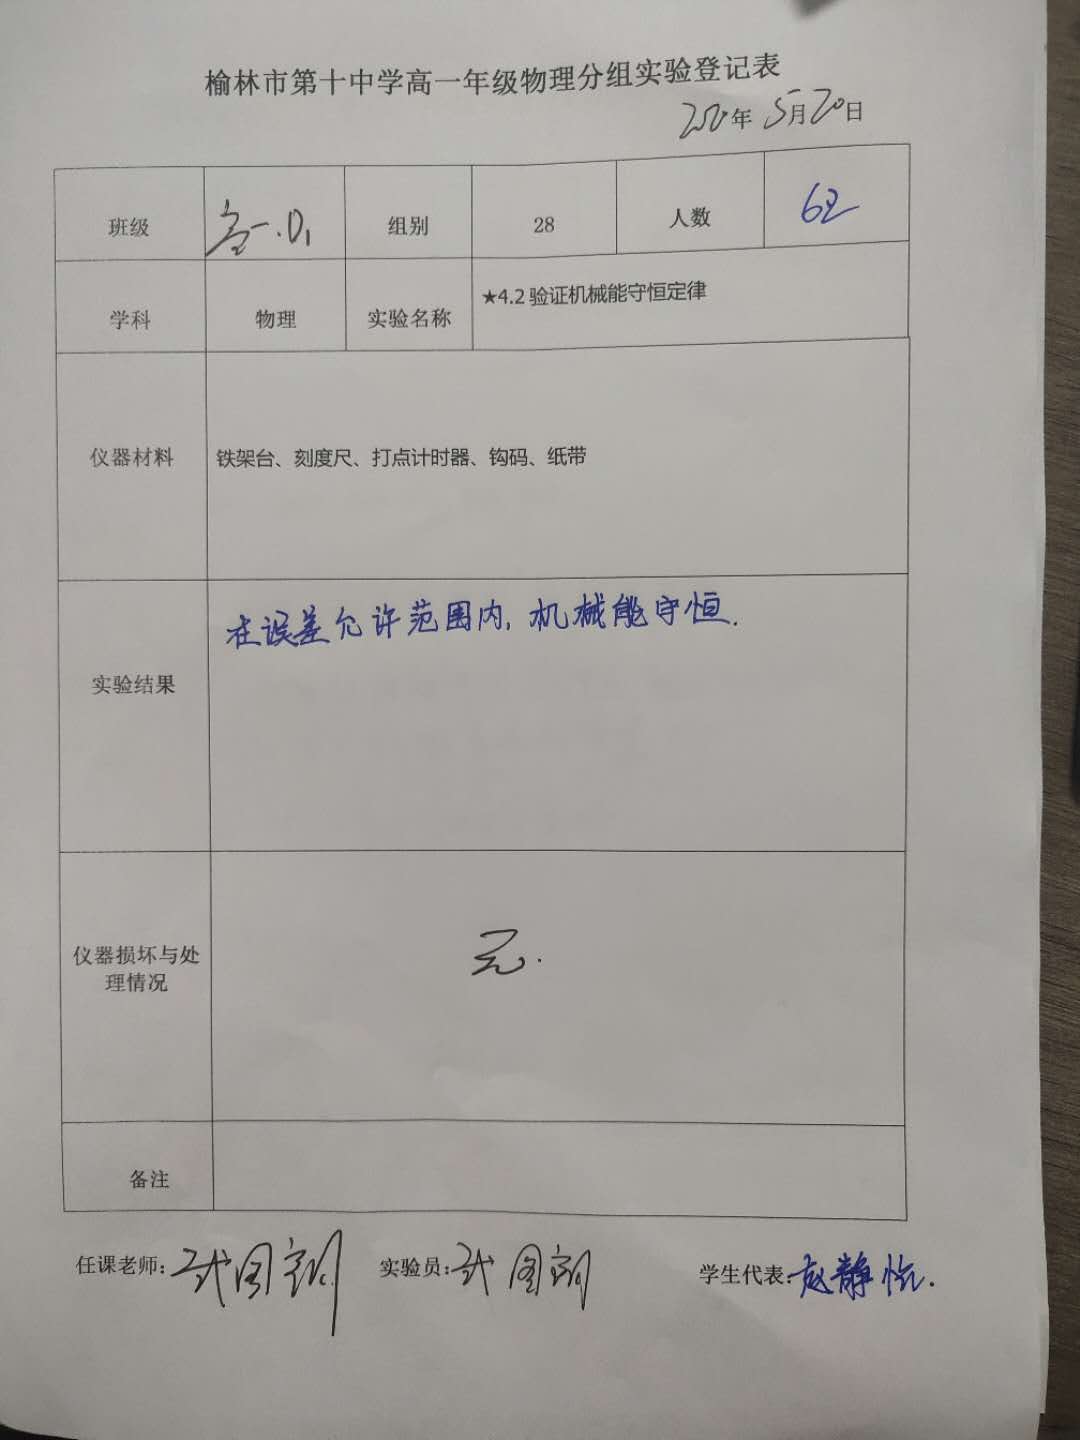 榆林市第十中学高一年级物理分组实验登记表
年 5月20日
班级 高一.01 组别 28 人数 62
学科 物理 实验名称 ★4.2 验证机械能守恒定律
仪器材料 铁架台、刻度尺、打点计时器、钩码、纸带
实验结果 在误差允许范围内,机械能守恒.
仪器损坏与处
理情况
无.
备注
任课老师: 实验员: 学生代表:赵静怡.